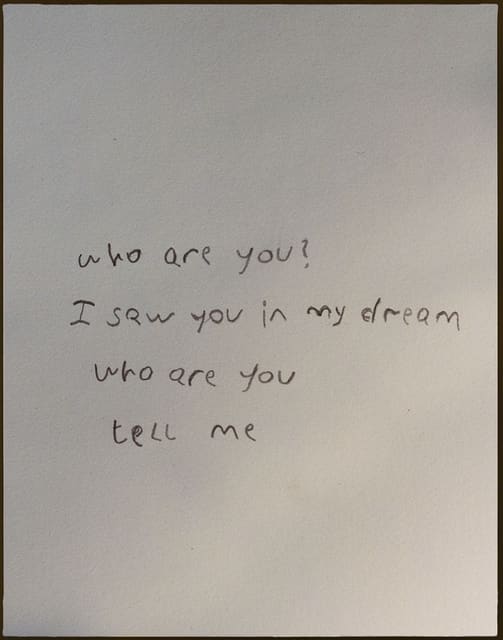 who are you?
I saw you in my dream
who are you
tell me